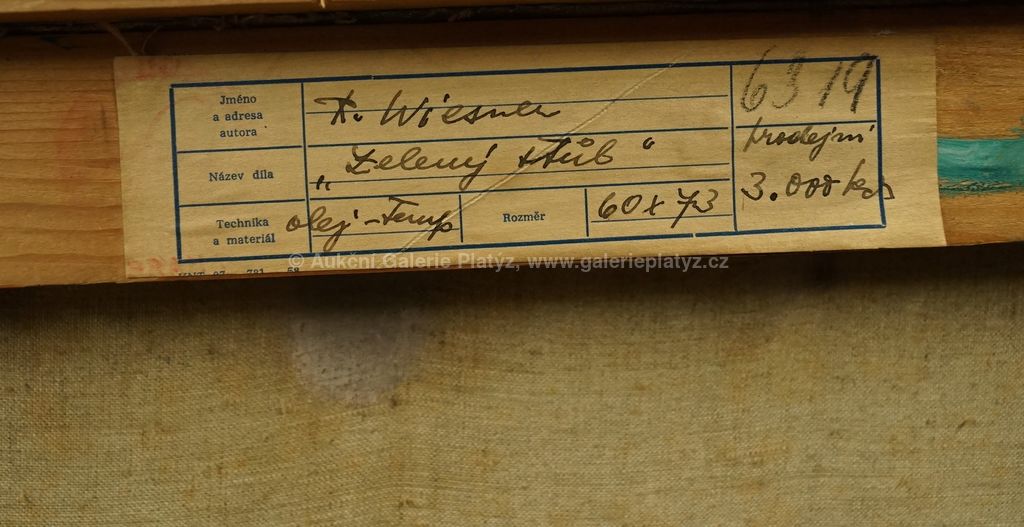 Jméno
a adresa
autora
R. Wiesner
6319
Název díla
„Zelený stůl“
prodejní
3.000 kčs
Technika
a materiál
olej-Temp
Rozměr
60x73
© Aukční Galerie Platýz, www.galerieplatyz.cz